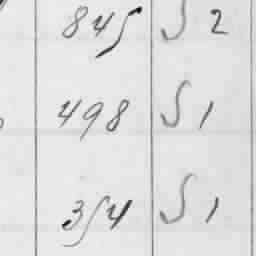 845 S 2
498 S 1
354 S 1